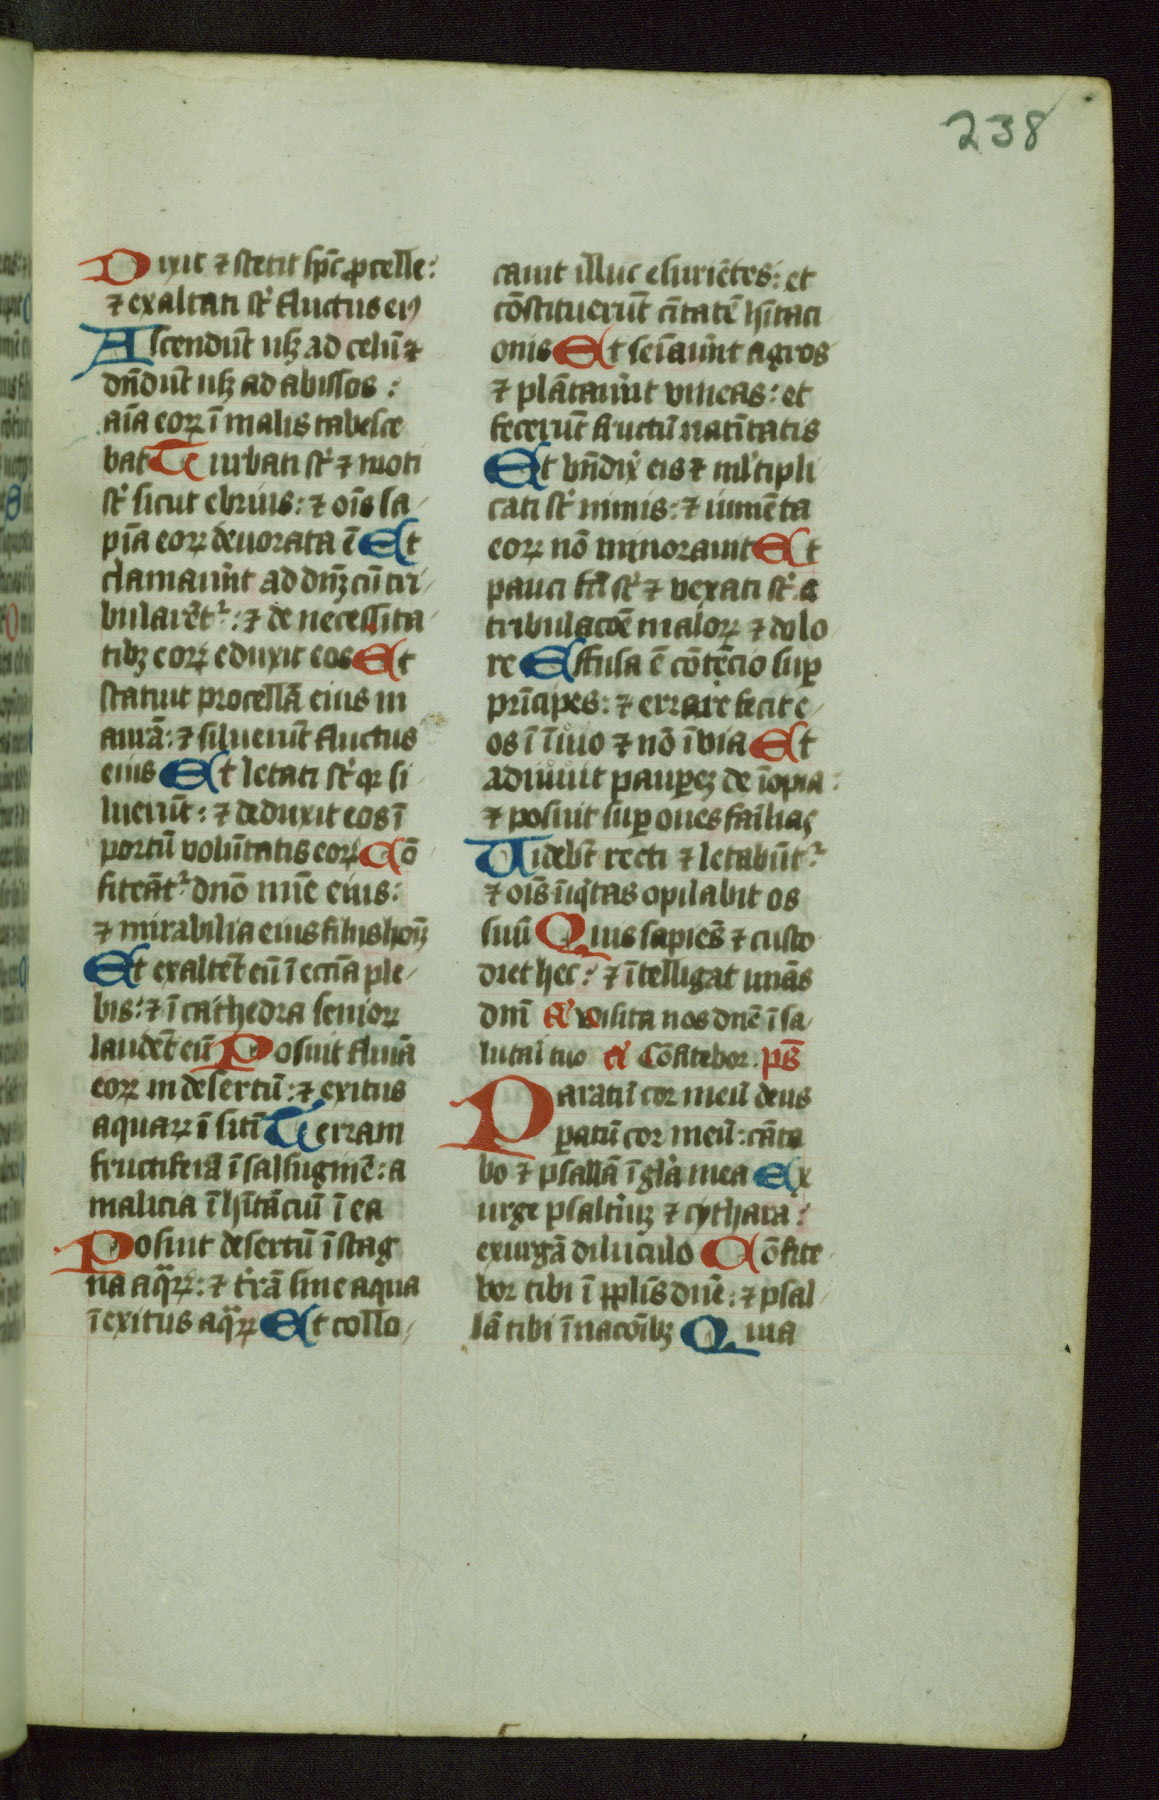 238
Dixit ⁊ stetit sp̄c ꝓcelle:
⁊ exaltati st̄ fluctus eiꝰ
Ascendūt usqꝫ ad celū ⁊
dn̄dūt usqꝫ ad abissos:
aīa eoꝝ ī malis tabesce
bat Turbati st̄ ⁊ moti
st̄ sicut ebrius: ⁊ oīs sa
pīa eoꝝ deuorata ē Et
clamauin̄t ad dn̄ꝫ cū tri
bularēt᷑: ⁊ de necessita
tibꝫ eoꝝ eduxit eos Et
statuit procellā eius in
aurā: ⁊ siluerūt fluctus
eius Et letati st̄ qꝛ si
luerūt: ⁊ deduxit eos ī
portū volūtatis eoꝝ Cō
fiteāt᷑ dn̄o mīe eius:
⁊ mirabilia eius filiis hoīꝫ
Et exaltēt eū ī eccīa ple
bis: ⁊ ī cathedra senioꝝ
laudēt eū Posuit flūīa
eoꝝ in desertū: ⁊ exitus
aquaꝝ ī sitī Terram
fructiferā ī salsuginē: a
malicia īhītāciū ī ea
Posuit desertū ī stag
na aqᷓꝝ: ⁊ t̄rā sine aqua
ī exitus aqᷓꝝ Et collo
cauit illuc esuriētes: et
cōstituerūt cītatē hītaci
onis Et semīauīnt agros
⁊ plātauīnt vineas: et
fecerūt fructū natītatis
Et bn̄dix̄ eis ⁊ ml̄tipli
cati st̄ nimis: ⁊ iumēta
eoꝝ nō minorauit Et
pauci fc̄i st̄ ⁊ vexati st̄ a
tribulacōe maloꝝ ⁊ dolo
re Effusa ē cōtēcio suꝑ
prīcipes: ⁊ errare fecit e
os ī īuio ⁊ nō ī via Et
adiuuit pauꝑeꝫ de īopia:
⁊ posuit suꝑ oues faīlias
Videbt̄ recti ⁊ letabūt᷑
⁊ oīs īiqͥtas opilabit os
suū Quis sapiēs ⁊ custo
diet hec: ⁊ ītelligat mīas
dn̄i a᷑ Visita nos dn̄e ī sa
lutari tuo a᷑ Cōfitebor. ps̄
Paratū cor meū deus
ꝑatū cor meū: cāta
bo ⁊ psallā ī gl̄a mea Ex
urge psaltīuꝫ ⁊ cythara:
exurgā diluculo Cōfite
bor tibi ī ppl̄is dn̄e: ⁊ psal
lā tibi ī nacōibꝫ Quia